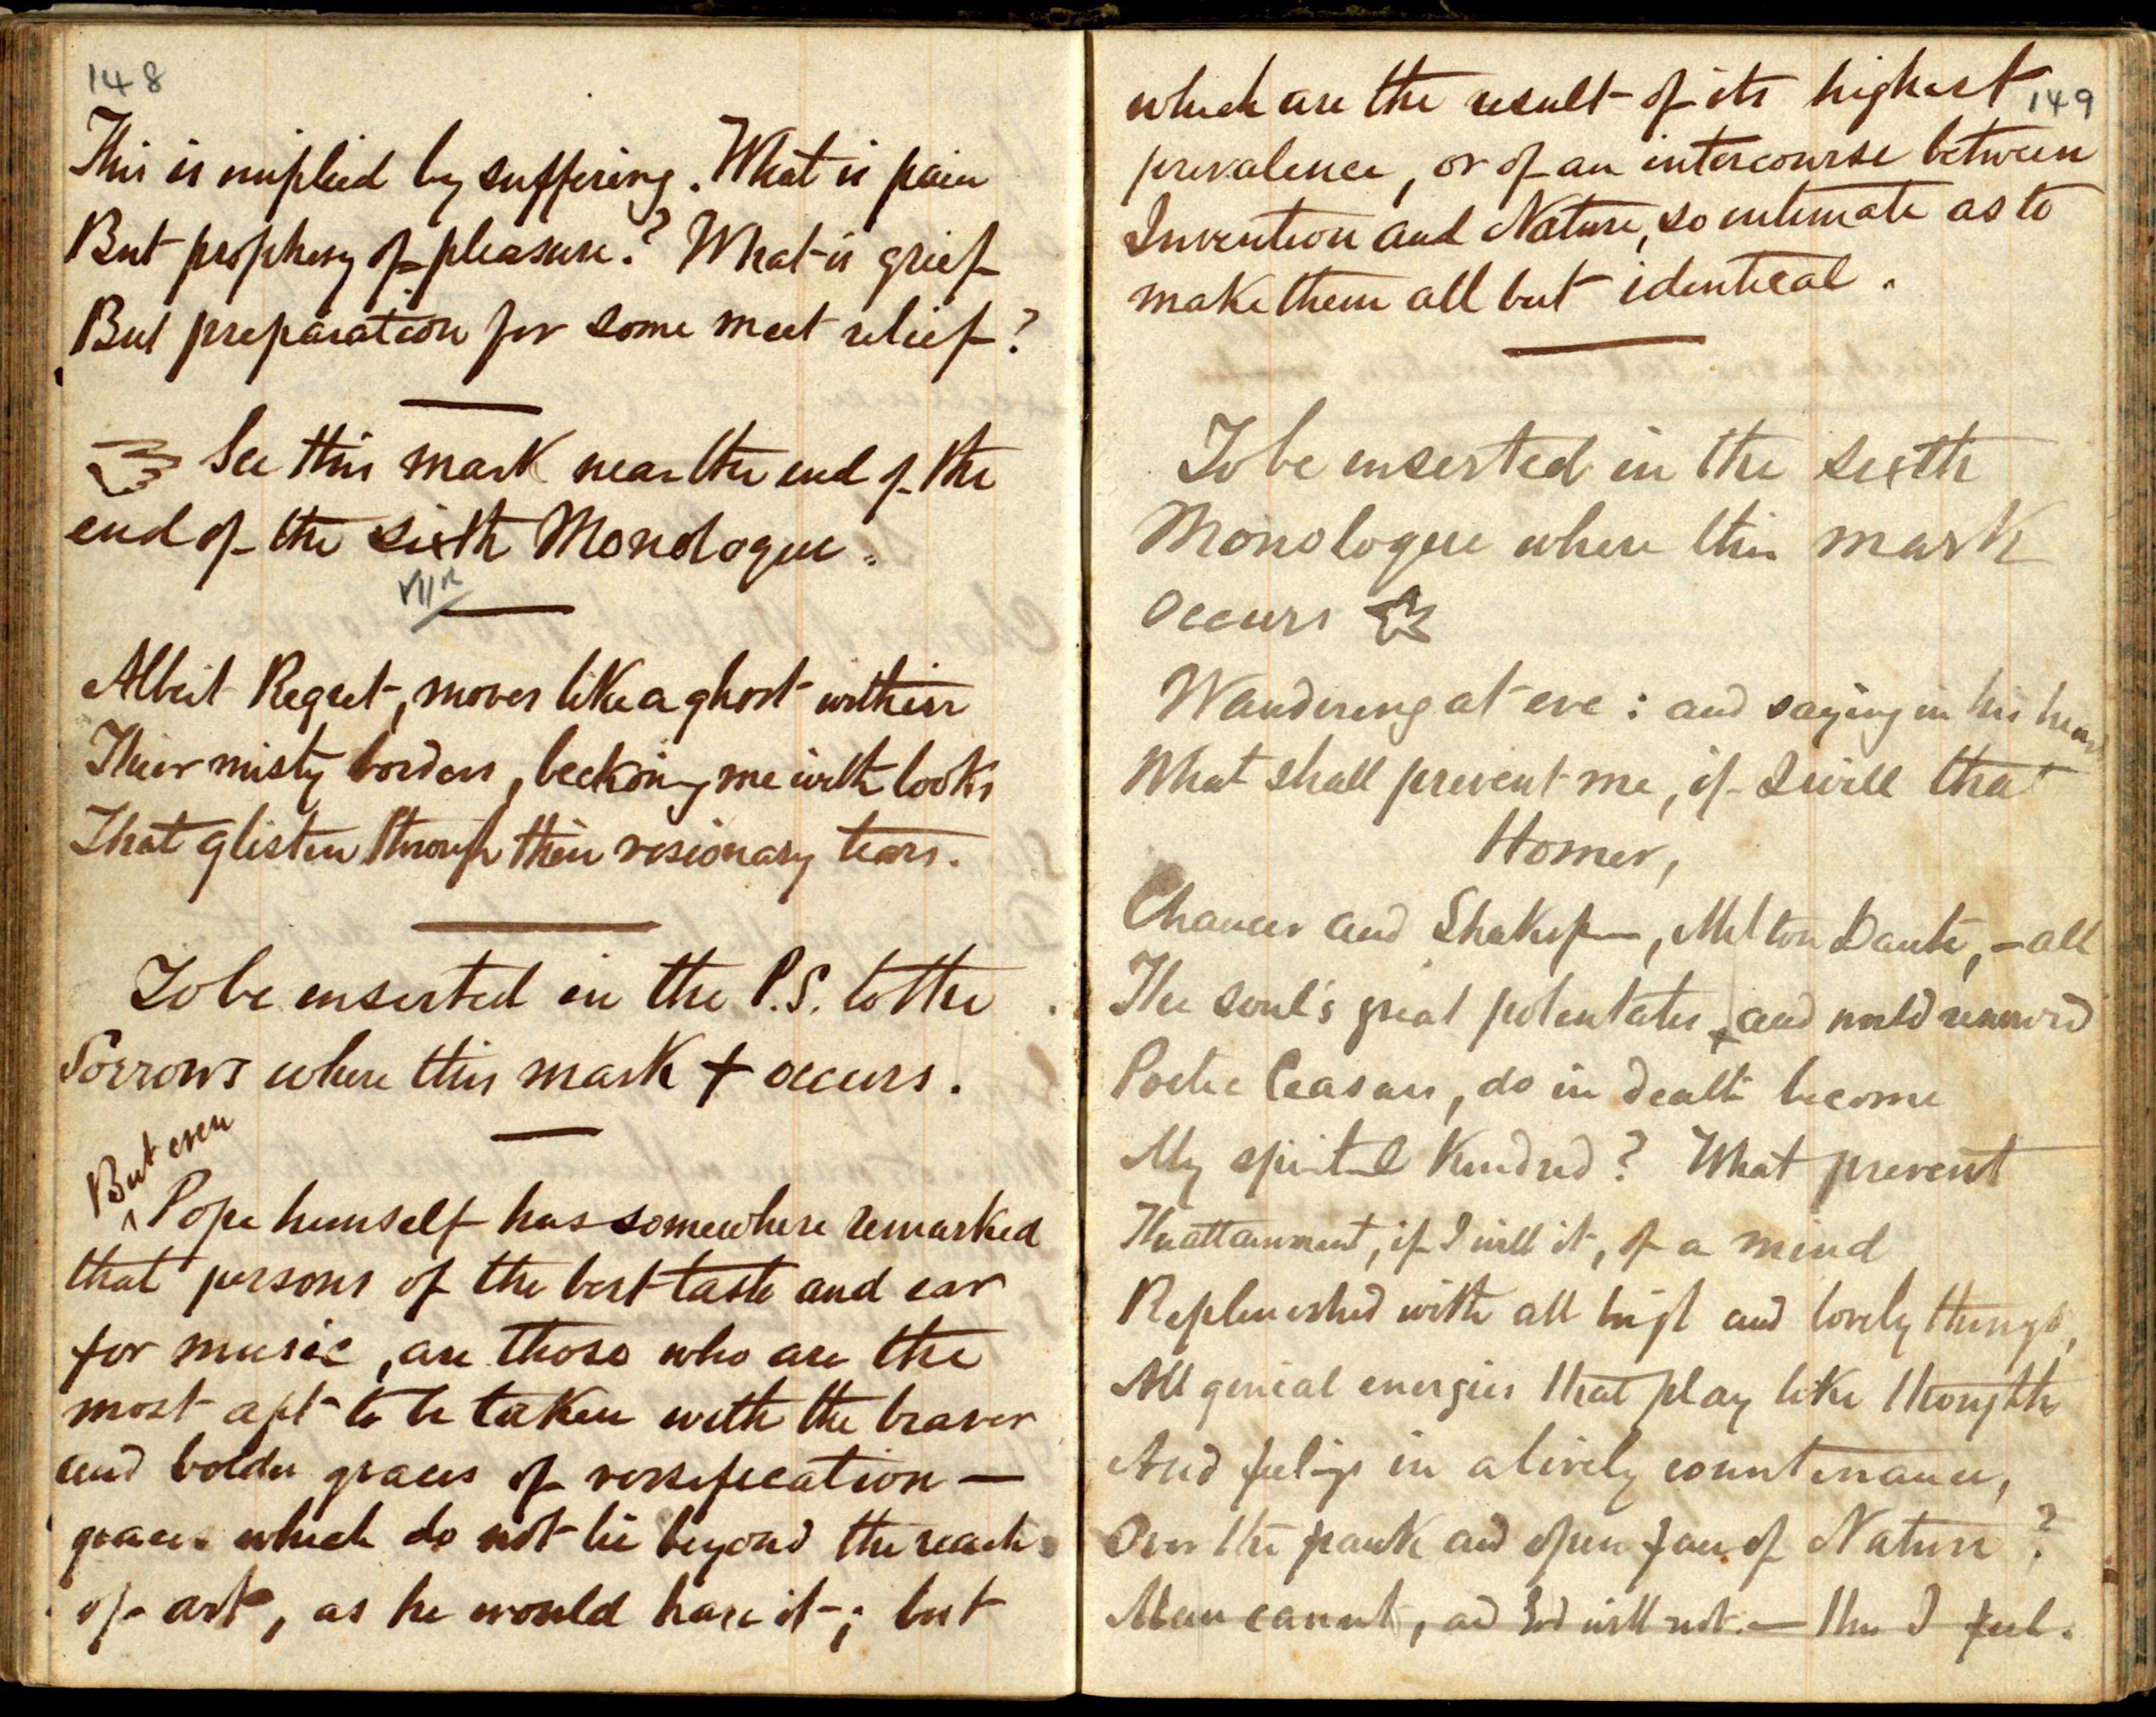 148
This is implied by suffering. What is pain
But prophesy of pleasure? What is grief
But preparation for some meet relief?
See this mark near the end of the
end of the sixth Monologue.
VII
Albeit Regret, moves like a ghost within
Their misty borders, beckoning me with looks
That glisten through their visionary tears.
To be inserted in the P.S. to the
Sorrows where this mark + occurs.
But even
^ Pope himself has somewhere remarked
that persons of the best taste and ear
for music, are those who are the
most apt to be taken with the braver
and bolder graces of versification —
graces which do not lie beyond the reach
of art, as he would have it; but
149
which are the result of its highest
prevalence, or of an intercourse between
Invention and Nature, so intimate as to
make them all but identical.
To be inserted in the sixth
Monologue where this mark
occurs
Wandering at eve: and saying in his heart
What shall prevent me, if I will that
Homer,
Chaucer and Shaksp—, Milton Dante, — all
The soul's great potentates, and world renownd
Poetic Ceasars, do in death become
My spiritual Kindred? What prevent
The attainment, if I will it, of a mind
Replenished with all high and lovely things,
All genial energies that play like thoughts
And feelings in a lively countenance,
Over the frank and open face of Nature?
Man cannot, and God will not. — thus I feel.